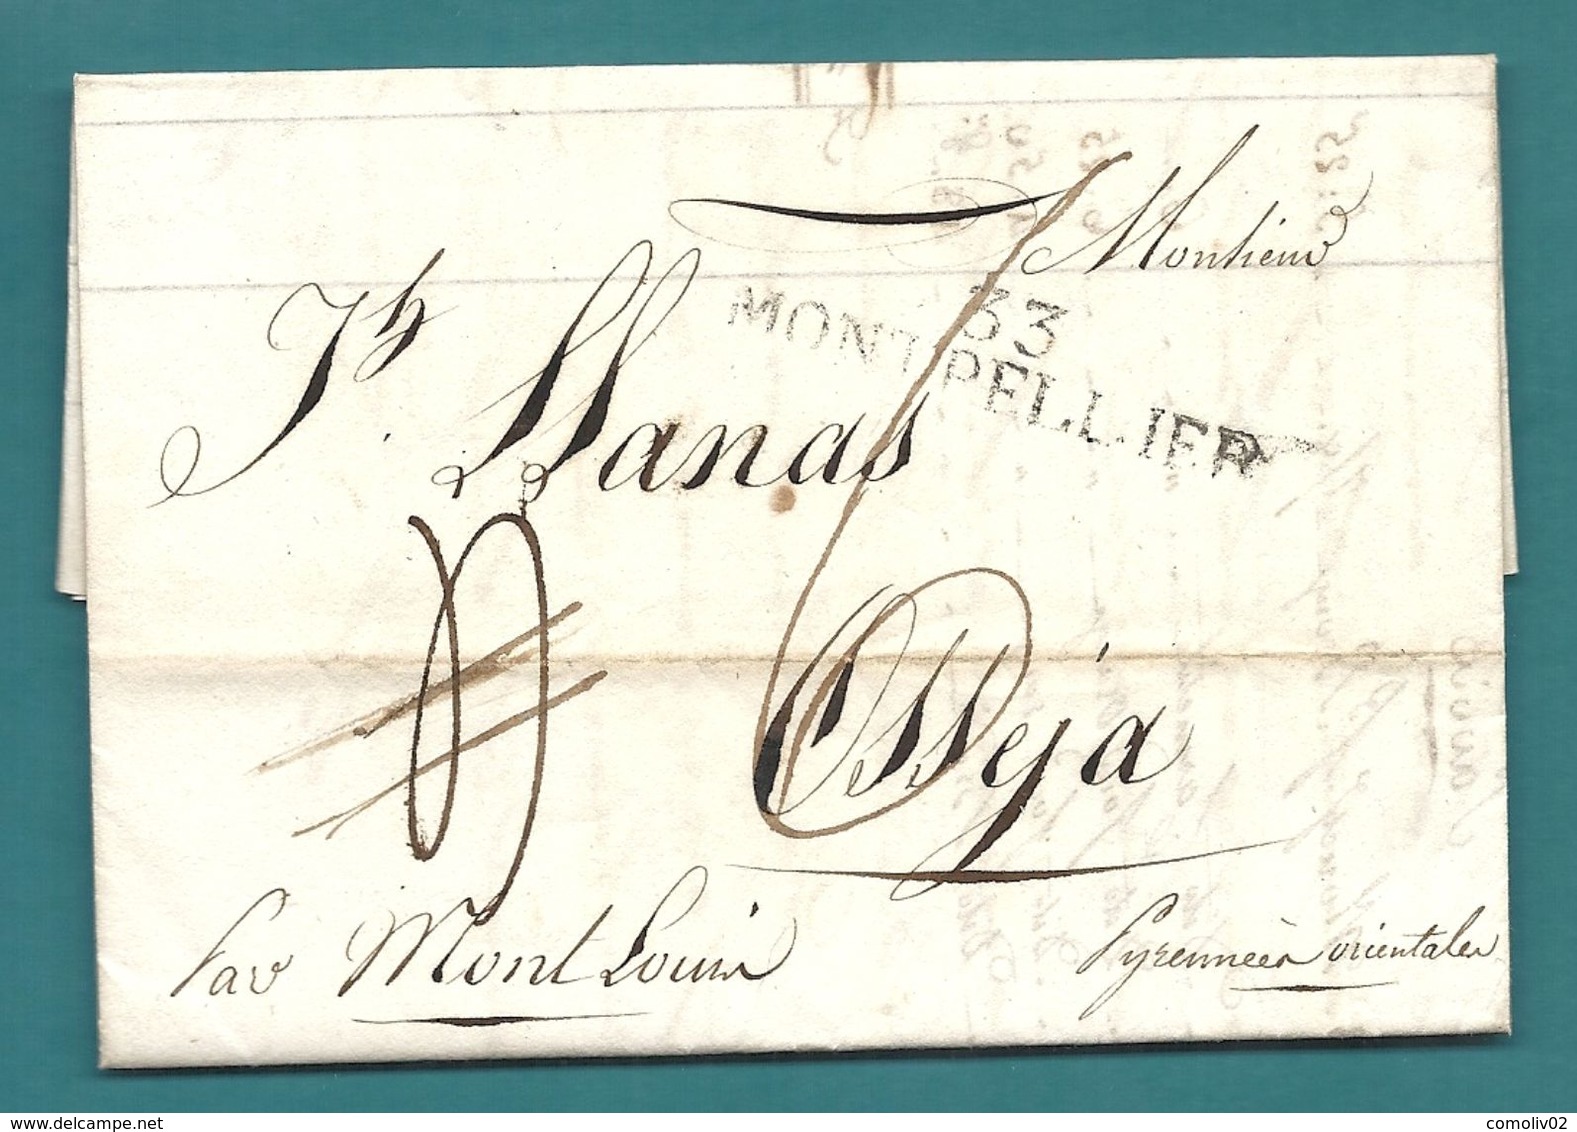 Monsieur
33
MONTPELLIER
Jh. Llanas
6
Osséjà
Par Mont Louis
Pyrennées orientales
www.delcampe.net
comoliv02